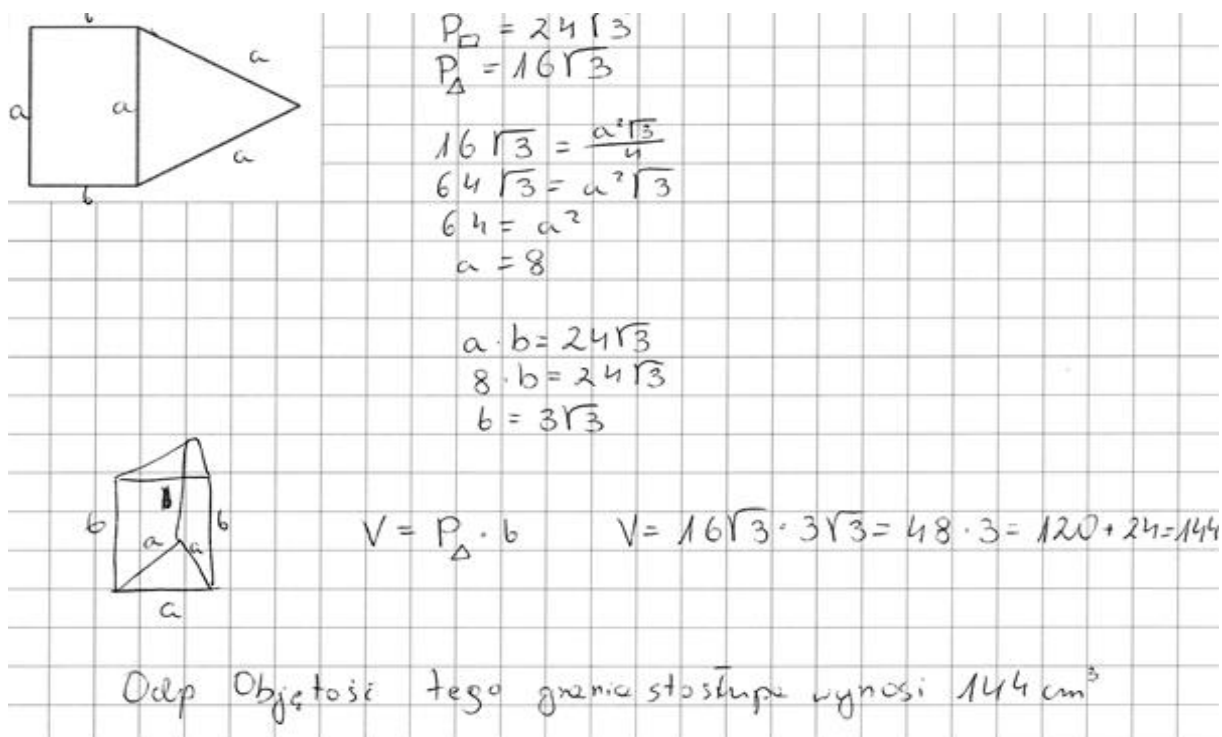 b
P▭ = 24√3
a
P△ = 16√3
a
a
a
16√3 = a²√3/4
64√3 = a²√3
b
64 = a²
a = 8
a · b = 24√3
8 · b = 24√3
b = 3√3
b
b
a
a
a
V = P△ · b V = 16√3 · 3√3 = 48 · 3 = 120 + 24 = 144
Odp Objętość tego graniastosłupa wynosi 144 cm³